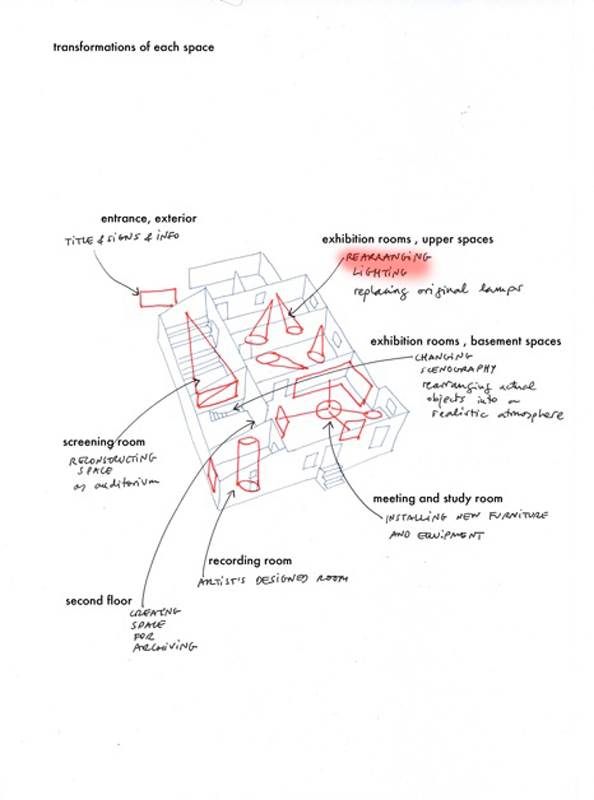 transformations of each space
entrance, exterior
TITLE & SIGNS & INFO
exhibition rooms , upper spaces
REARRANGING
LIGHTING
replacing original lamps
exhibition rooms , basement spaces
CHANGING
SCENOGRAPHY
rearranging actual
objects into a
realistic atmosphere
screening room
RECONSTRUCTING
SPACE
as auditorium
meeting and study room
INSTALLING NEW FURNITURE
AND EQUIPMENT
recording room
ARTIST'S DESIGNED ROOM
second floor
CREATING
SPACE
FOR
ARCHIVING